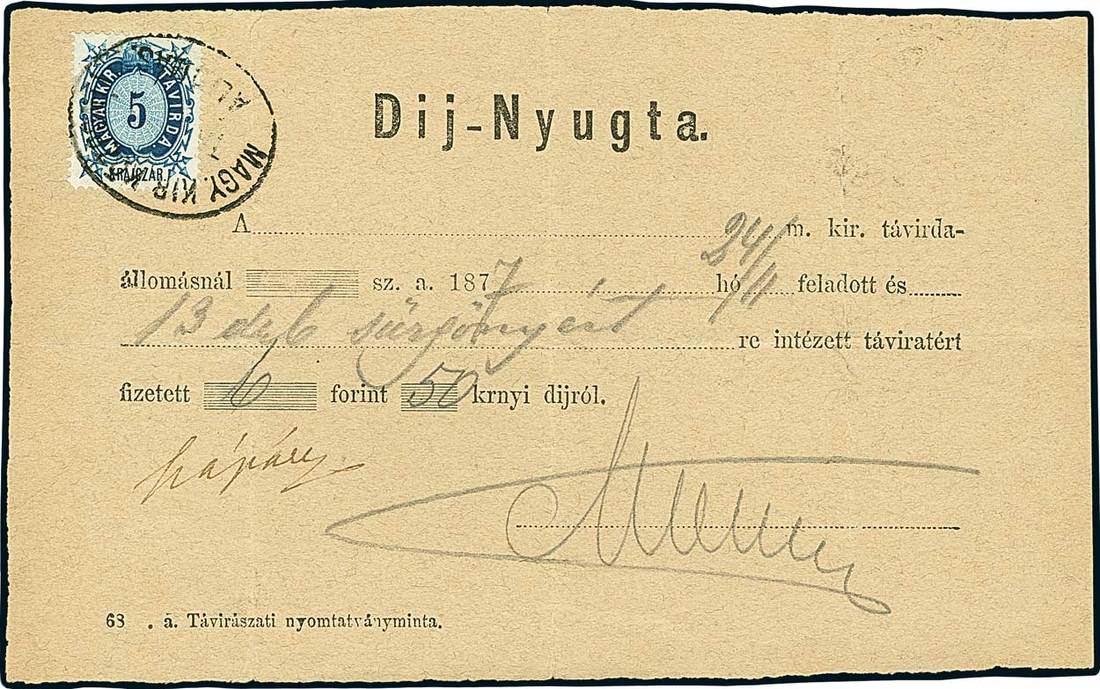 MAGYAR KIR. TÁVIRDA.
5
KRAJCZÁR.
MAGY. KIR.
Dij-Nyugta.
A m. kir. távirda-
állomásnál sz. a. 1877 24/11 hó feladott és
13 db sürgönyért re intézett táviratért
fizetett 6 forint 50 krnyi dijról.
68 . a. Távirászati nyomtatványminta.